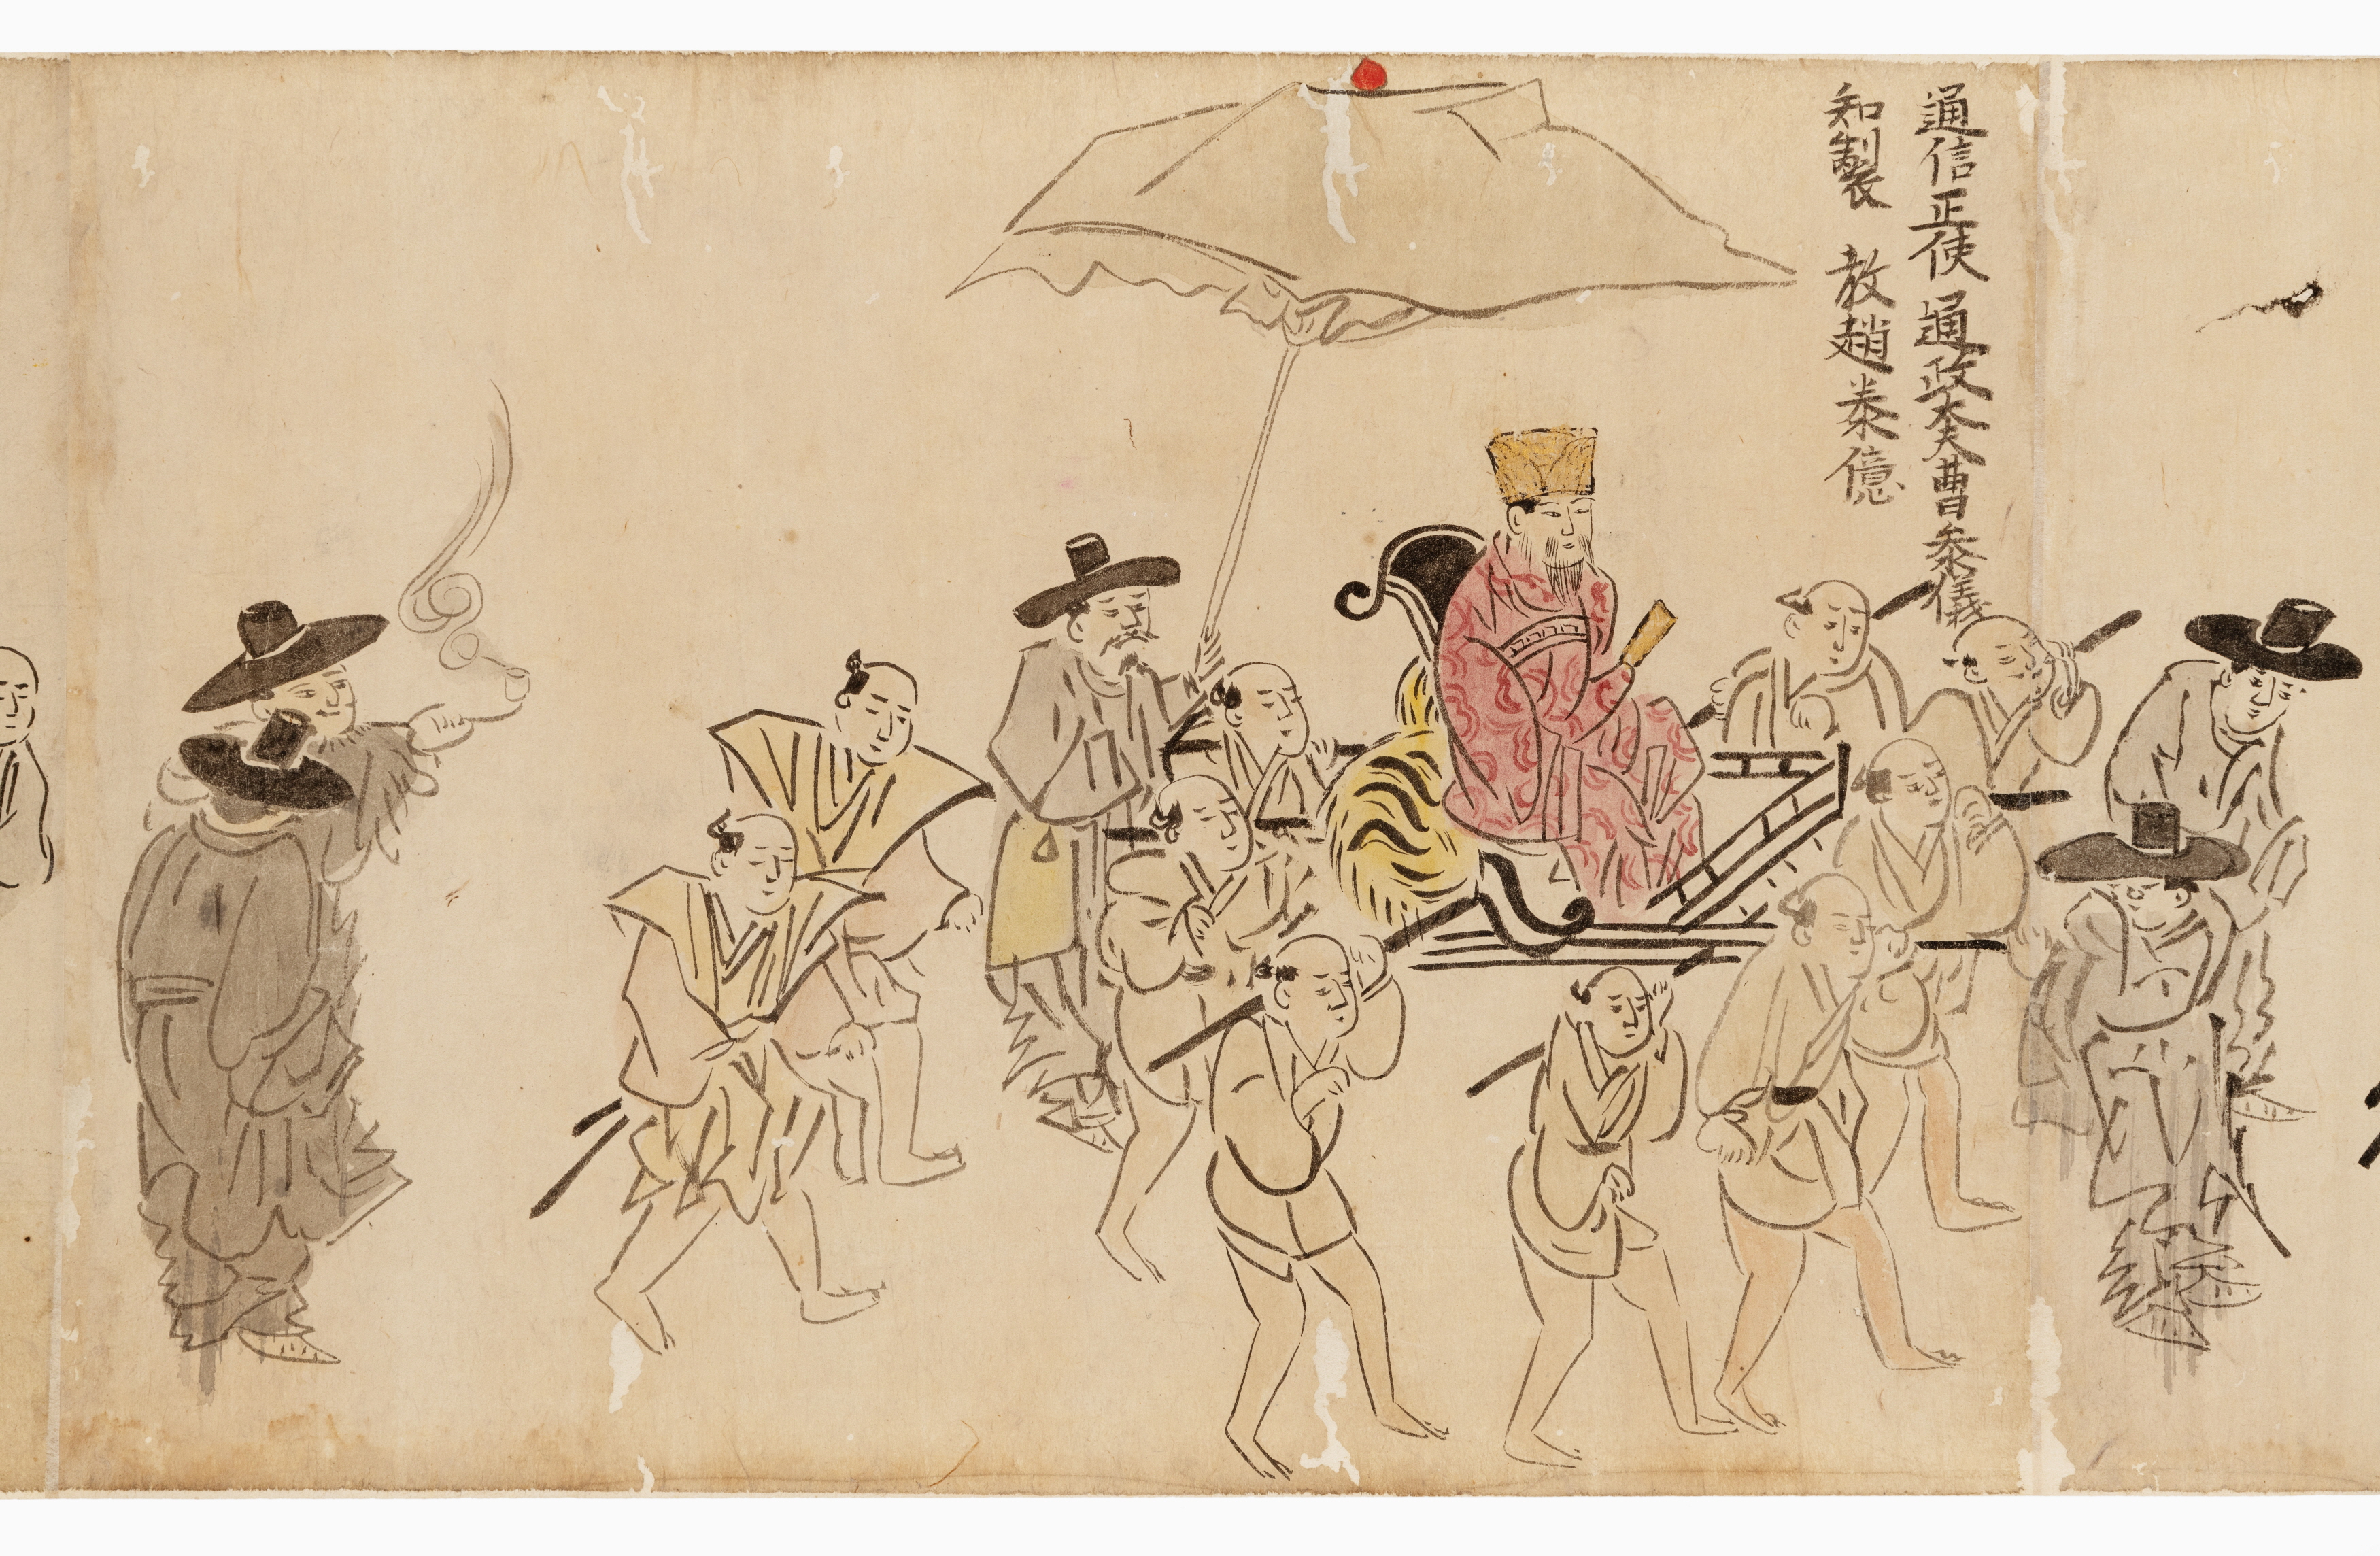 通信正使通政大夫曹參議
知製 教趙泰億